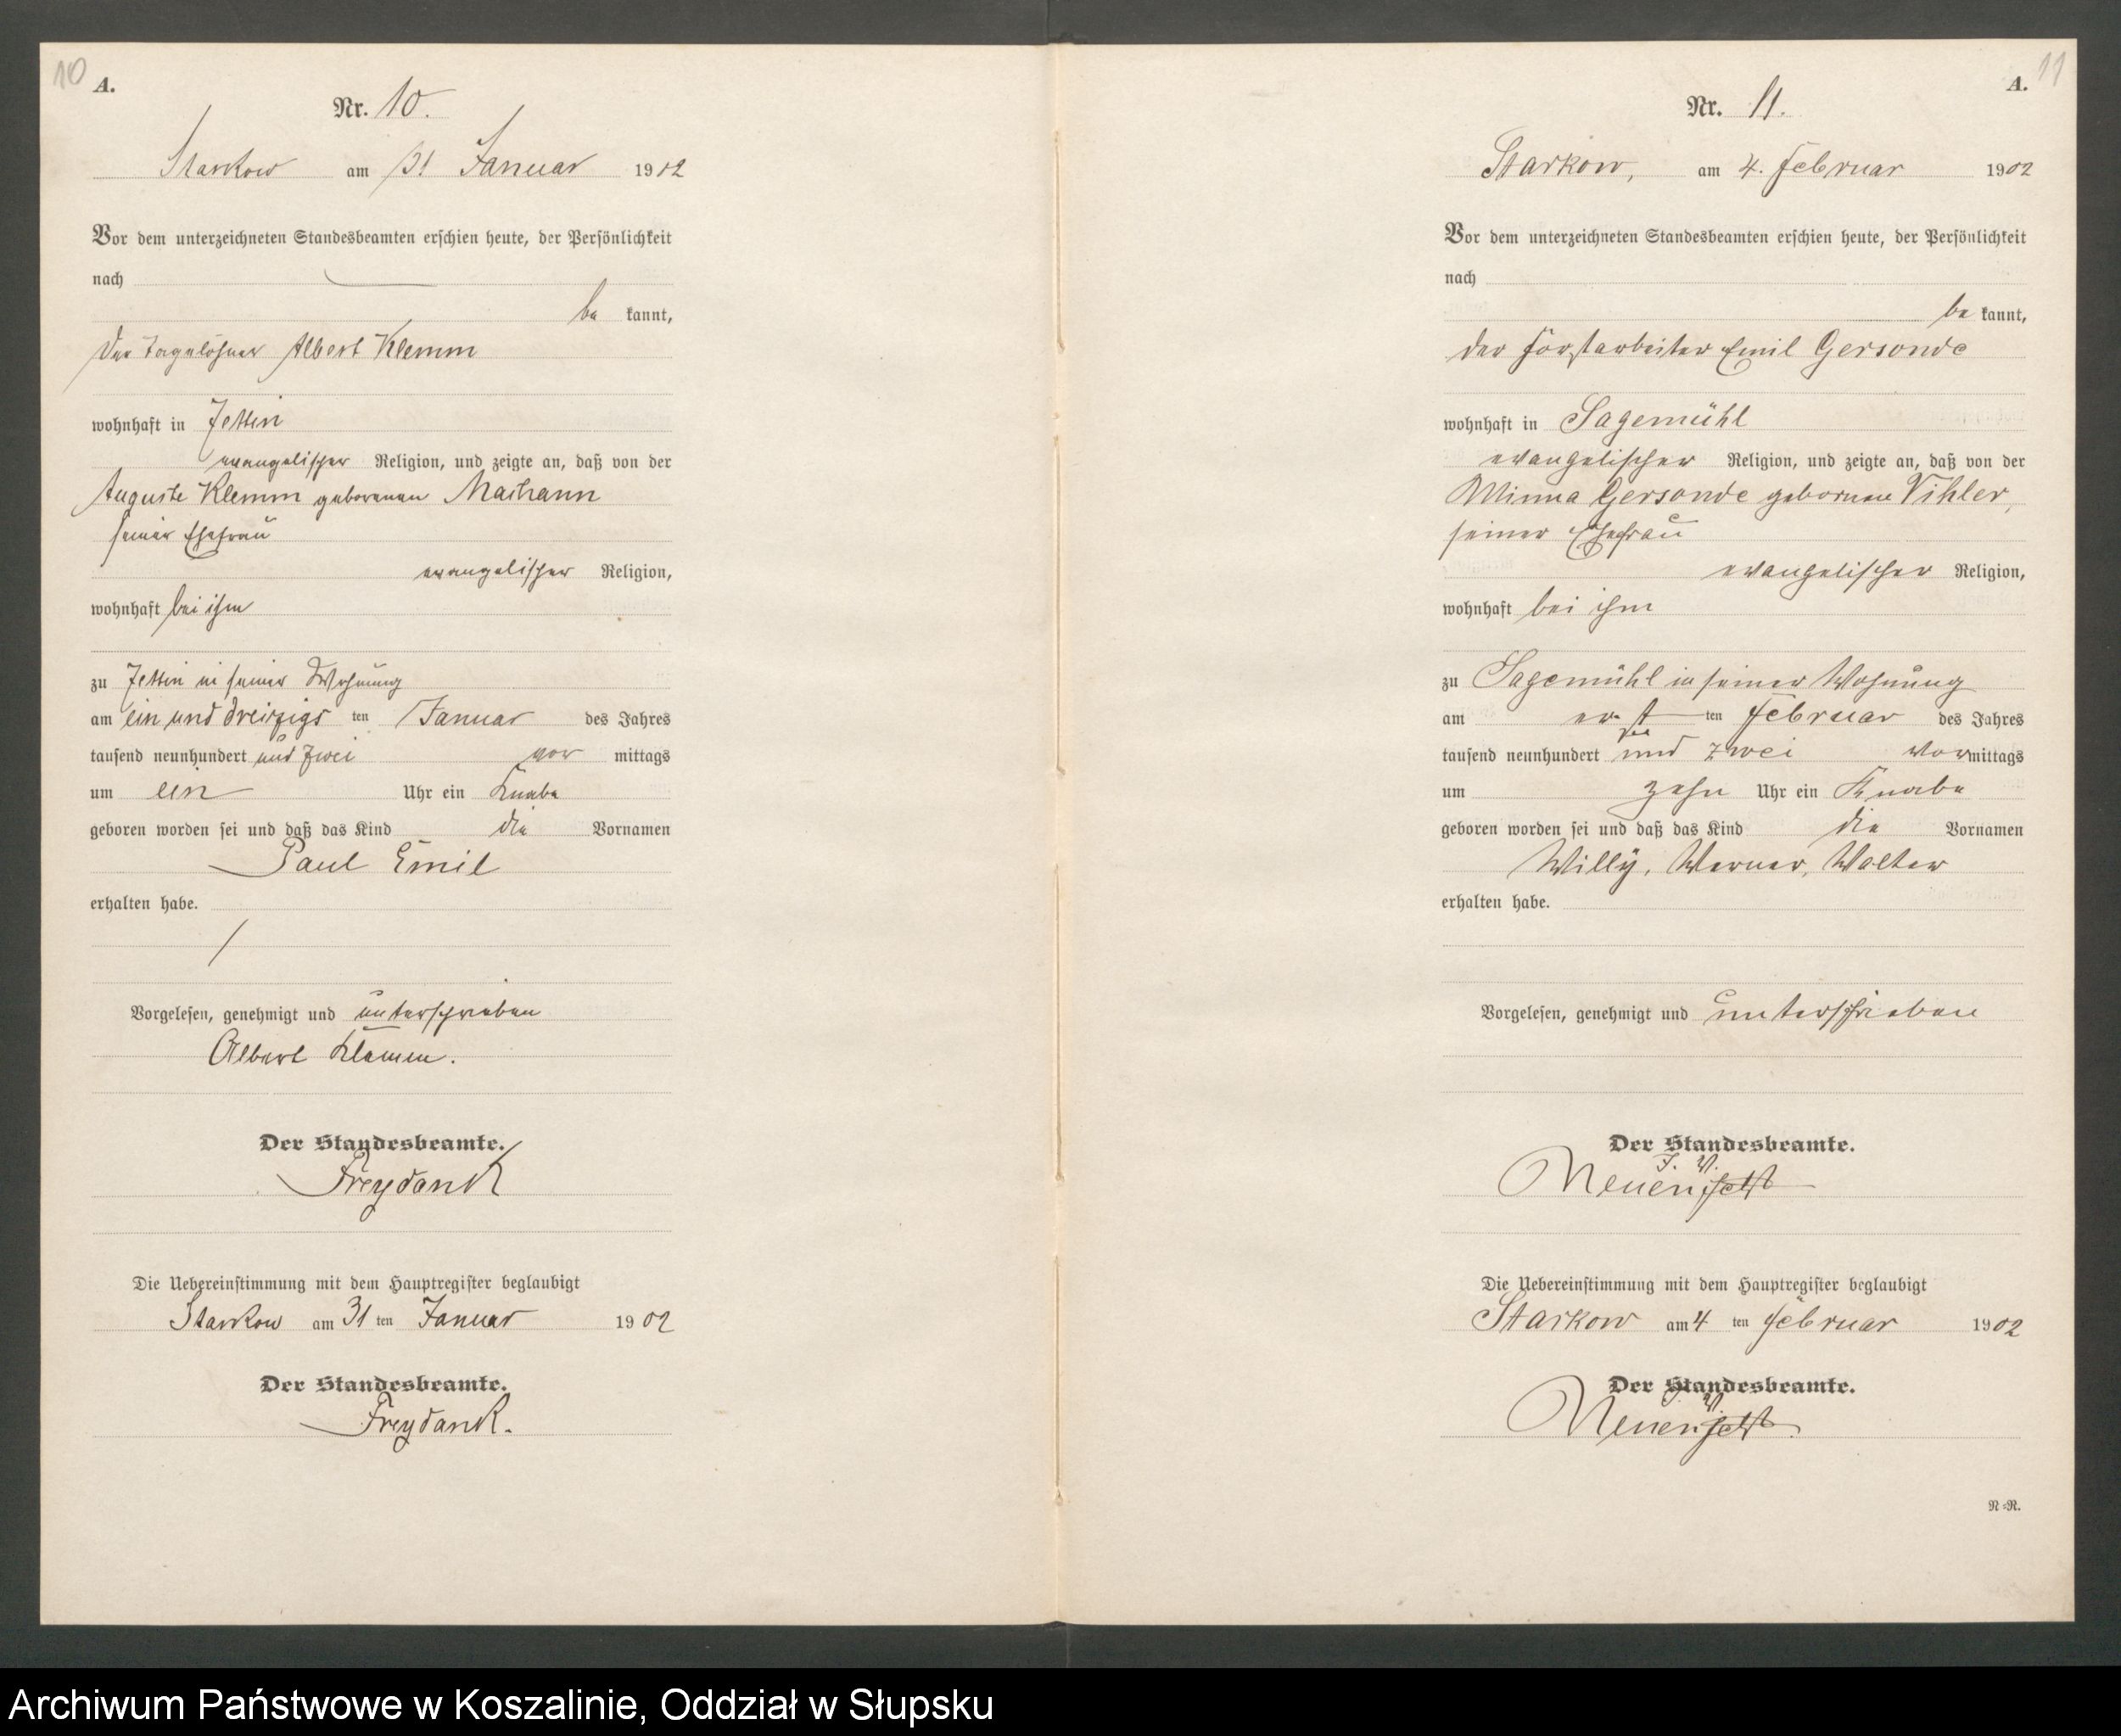 10
A.
Nr. 10.
Starkow am 31 Januar 1902
Vor dem unterzeichneten Standesbeamten erschien heute, der Persönlichkeit
nach
be kannt,
der Tagelöhner Albert Klemm
wohnhaft in
evangelischer Religion, und zeigte an, daß von der
Auguste Klemm geborenen
seiner Ehefrau
evangelischer Religion,
wohnhaft bei ihm
zu in seiner Wohnung
am ein und dreißigs ten Januar des Jahres
tausend neunhundert und zwei vor mittags
um ein Uhr ein Knabe
geboren worden sei und daß das Kind die Vornamen
Paul Emil
erhalten habe.
Vorgelesen, genehmigt und unterschrieben
Albert Klemm.
Der Standesbeamte.
Freydank
Die Uebereinstimmung mit dem Hauptregister beglaubigt
Starkow am 31 ten Januar 1902
Der Standesbeamte.
Freydank.
11
A.
Nr. 11.
Starkow, am 4. Februar 1902
Vor dem unterzeichneten Standesbeamten erschien heute, der Persönlichkeit
nach
be kannt,
der Forstarbeiter Emil Gersonde
wohnhaft in Sagemühl
evangelischer Religion, und zeigte an, daß von der
Minna Gersonde gebornen Vihler,
seiner Ehefrau
evangelischer Religion,
wohnhaft bei ihm
zu Sagemühl in seiner Wohnung
am erst ten Februar des Jahres
tausend neunhundert und zwei vormittags
um zehn Uhr ein Knabe
geboren worden sei und daß das Kind die Vornamen
Willy, Werner, Walter
erhalten habe.
Vorgelesen, genehmigt und unterschrieben
Der Standesbeamte.
J. V.
Die Uebereinstimmung mit dem Hauptregister beglaubigt
Starkow am 4 ten Februar 1902
Der Standesbeamte.
J. V.
N=R.
Archiwum Państwowe w Koszalinie, Oddział w Słupsku